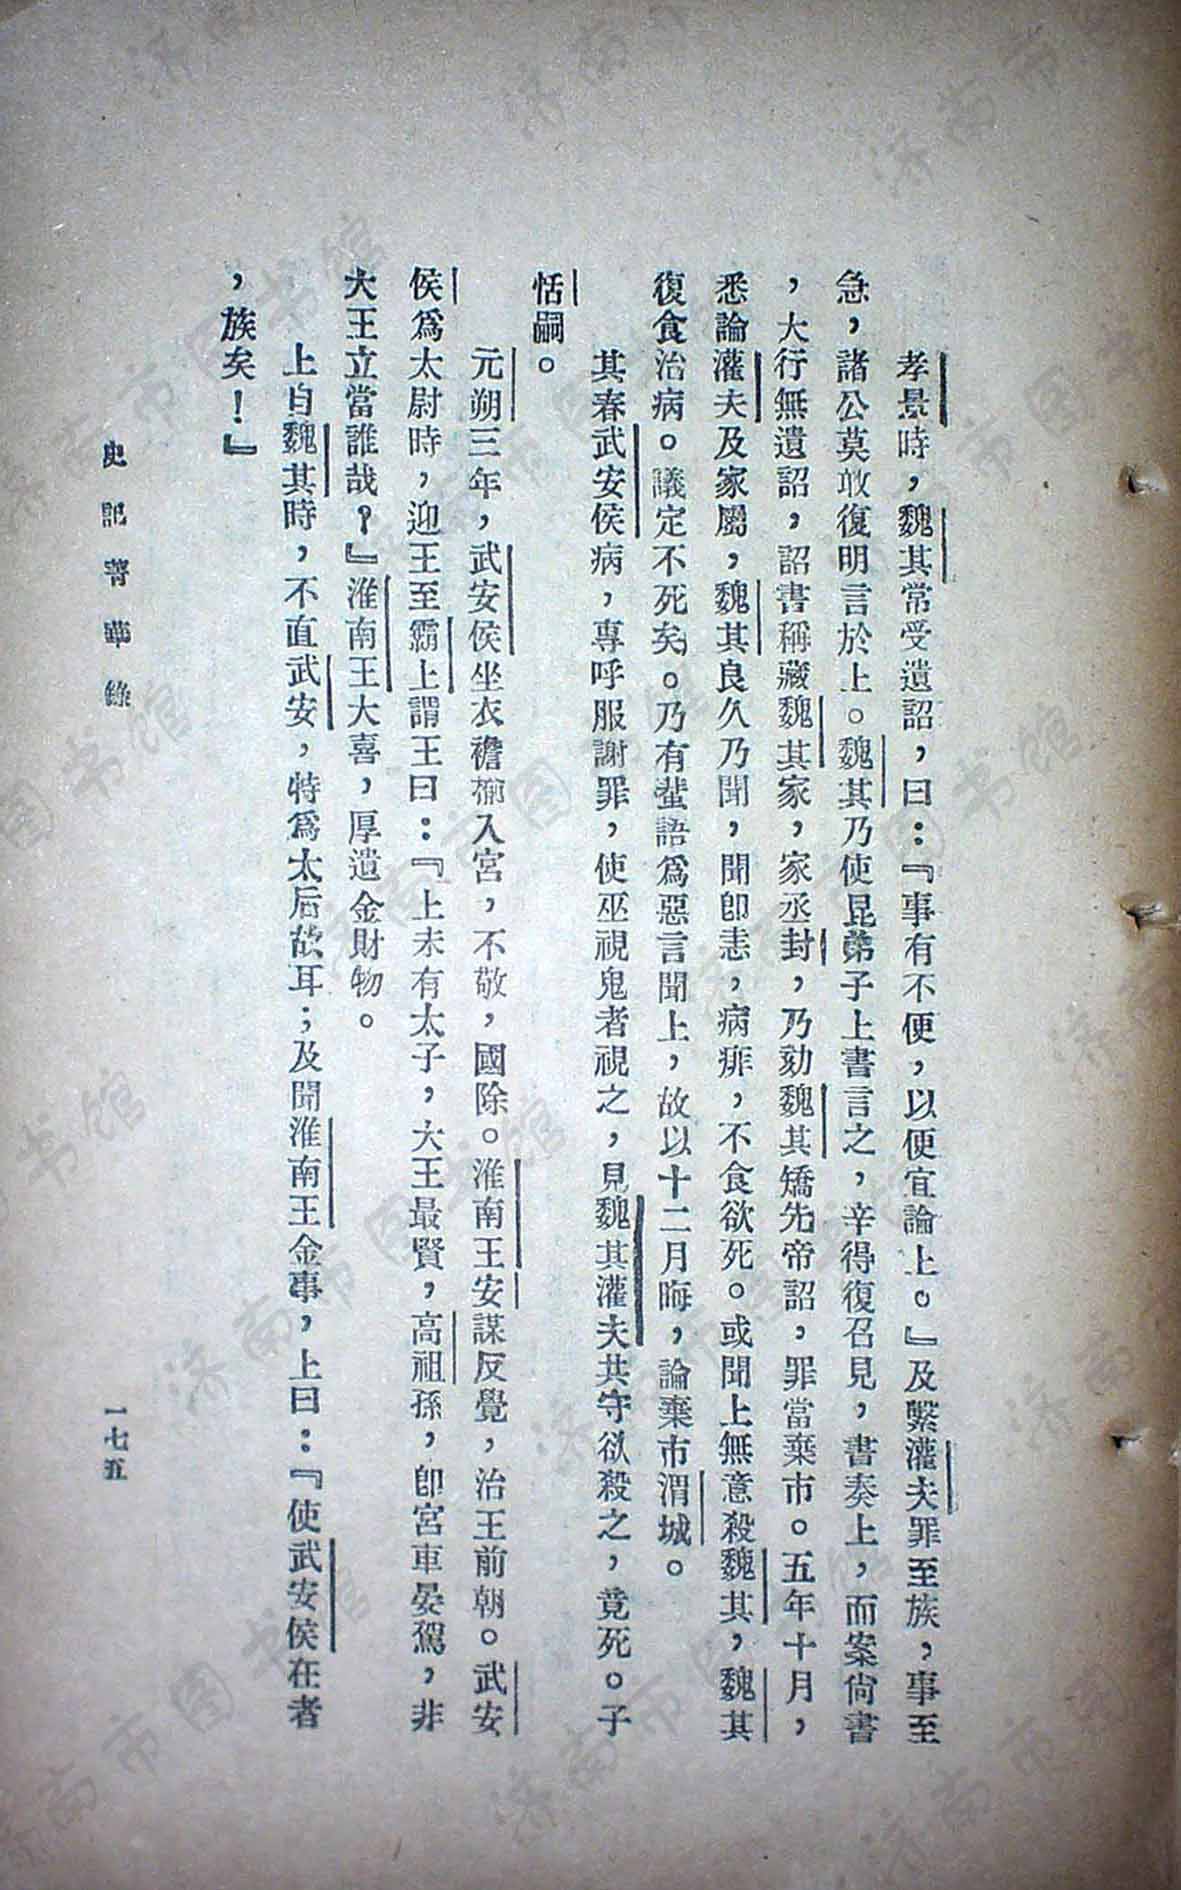 孝景時，魏其常受遺詔，曰：『事有不便，以便宜論上。』及繫灌夫罪至族，事至
急，諸公莫敢復明言於上。魏其乃使昆弟子上書言之，辛得復召見，書奏上，而案尙書
，大行無遺詔，詔書稱藏魏其家，家丞封，乃劾魏其矯先帝詔，罪當棄市。五年十月，
悉論灌夫及家屬，魏其良久乃聞，聞卽恚，病痱，不食欲死。或聞上無意殺魏其，魏其
復食治病。議定不死矣。乃有蜚語爲惡言聞上，故以十二月晦，論棄市渭城。
其春武安侯病，專呼服謝罪，使巫視鬼者視之，見魏其灌夫共守欲殺之，竟死。子
恬嗣。
元朔三年，武安侯坐衣襜褕入宮，不敬，國除。淮南王安謀反覺，治王前朝。武安
侯爲太尉時，迎王至霸上謂王曰：『上未有太子，大王最賢，高祖孫，卽宮車晏駕，非
大王立當誰哉？』淮南王大喜，厚遺金財物。
上自魏其時，不直武安，特爲太后故耳；及聞淮南王金事，上曰：『使武安侯在者
，族矣！』
史記菁華錄
一七五
济南市图书馆